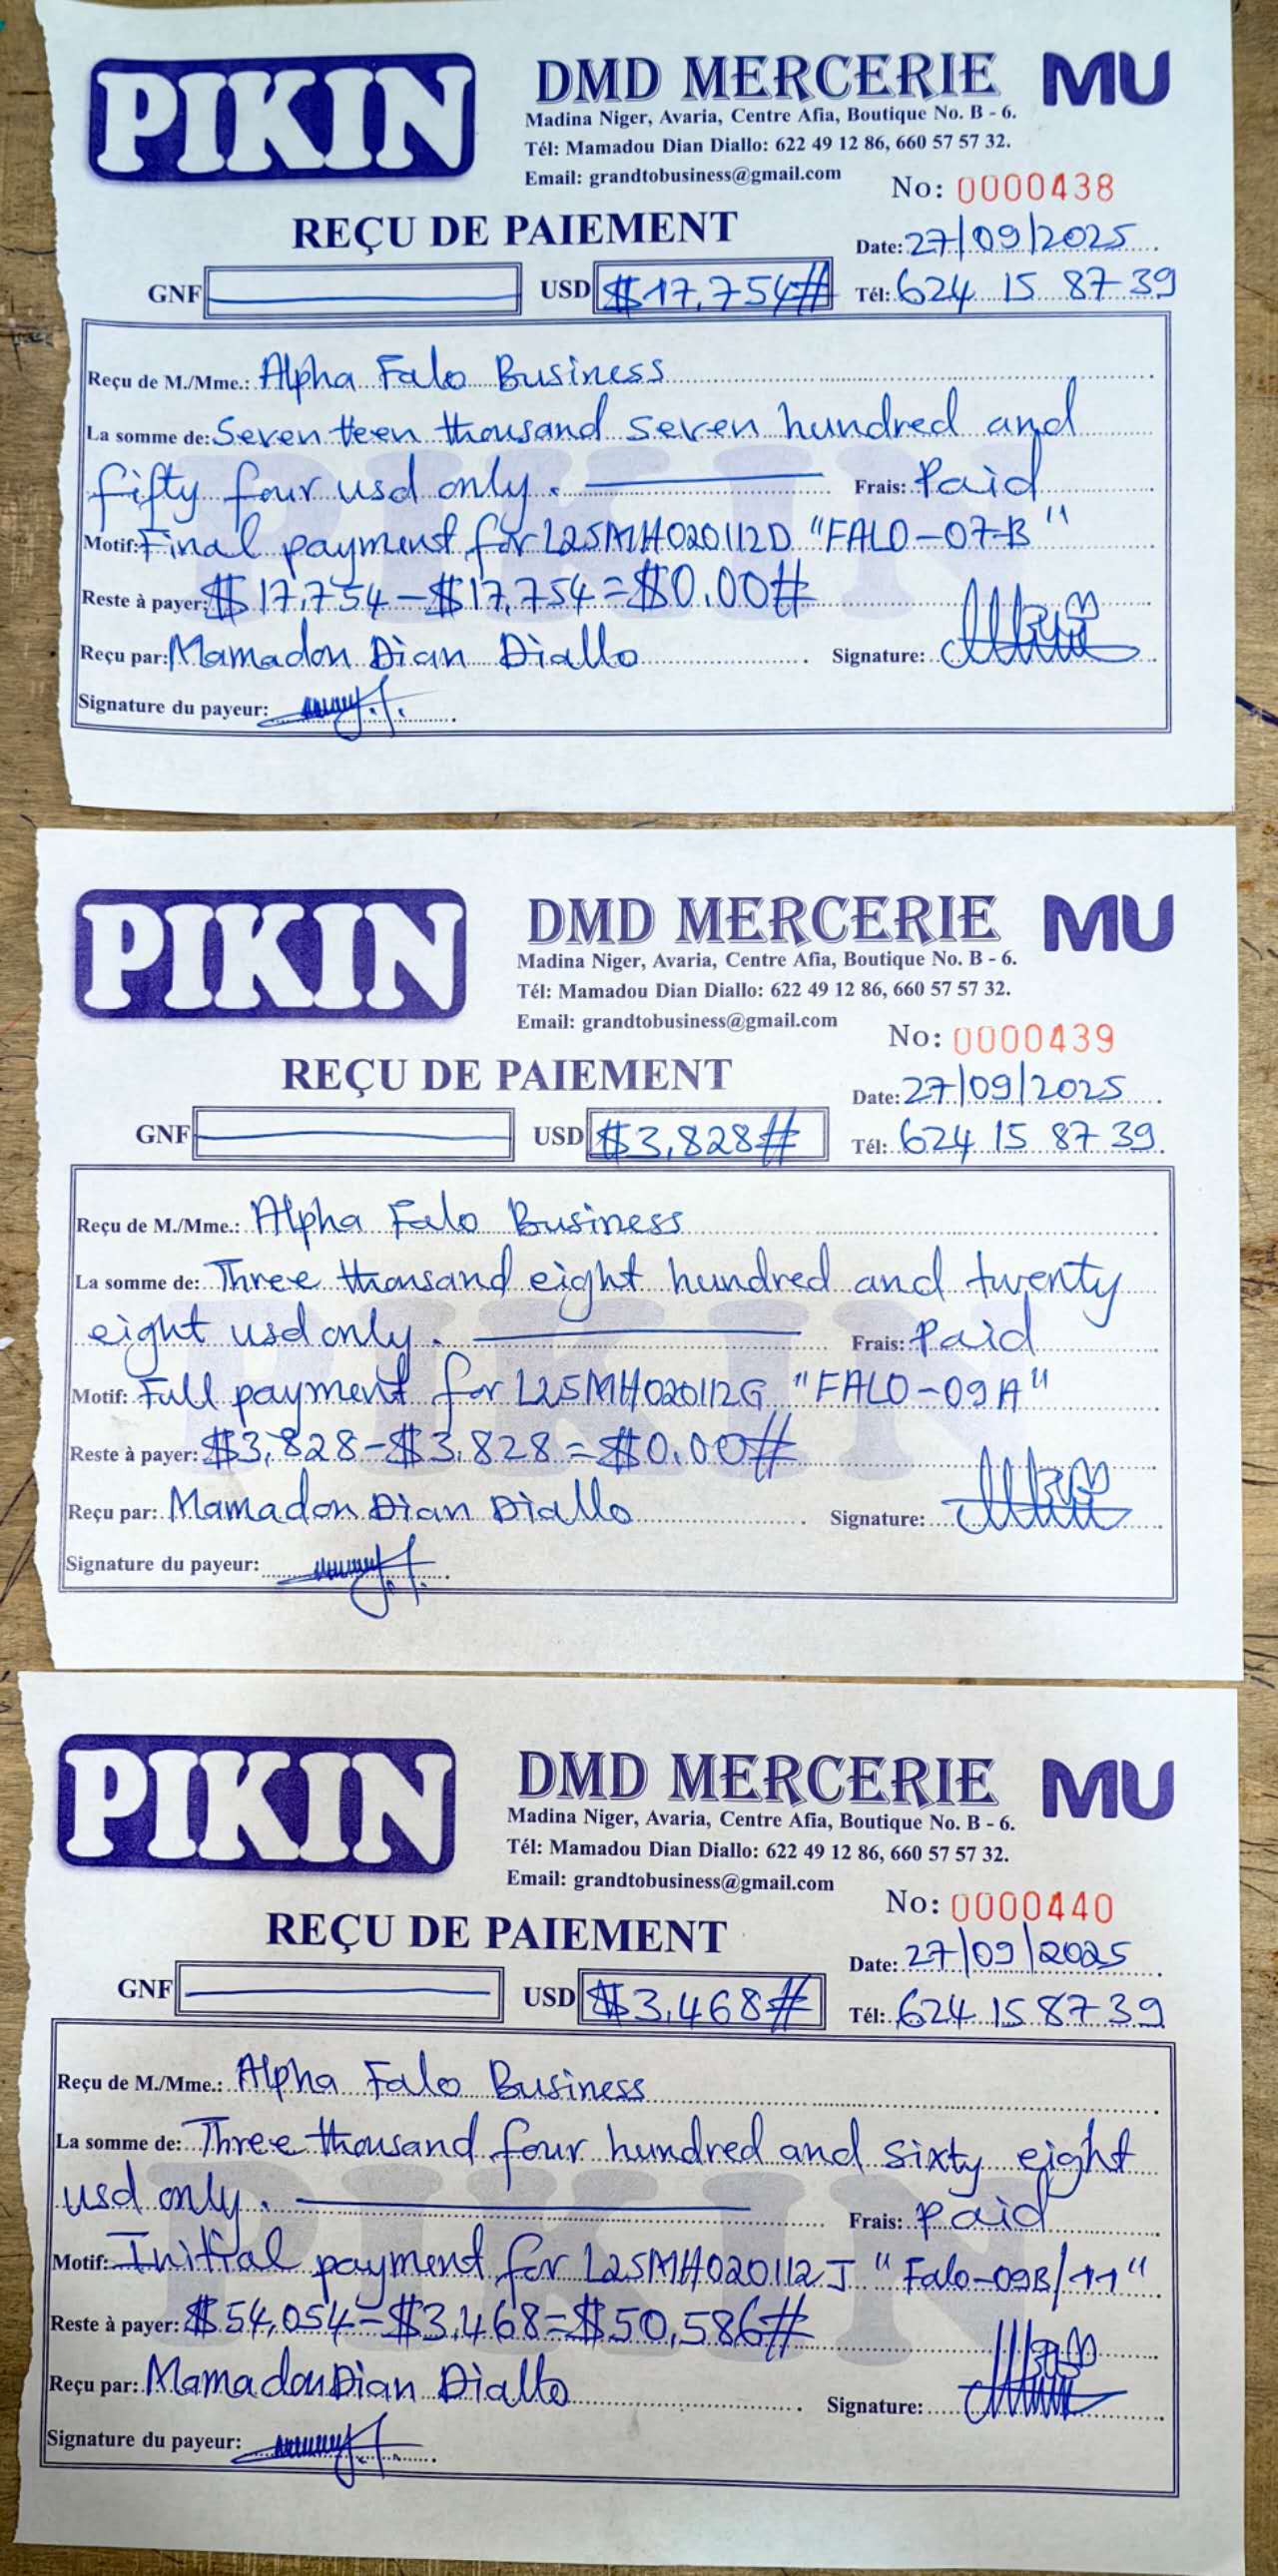 PIKIN
DMD MERCERIE MU
Madina Niger, Avaria, Centre Afia, Boutique No. B - 6.
Tél: Mamadou Dian Diallo: 622 49 12 86, 660 57 57 32.
Email: grandtobusiness@gmail.com
No: 0000438
REÇU DE PAIEMENT
Date: 27/09/2025
GNF USD $17,754# Tél: 624 15 87 39
Reçu de M./Mme.: Alpha Falo Business
La somme de: Seven teen thousand seven hundred and
fifty four usd only. Frais: Paid
Motif: Final payment for L25MH020112D "FALO-07-B"
Reste à payer: $17,754-$17,754=$0.00#
Reçu par: Mamadou Dian Diallo Signature:
Signature du payeur:
PIKIN
PIKIN
DMD MERCERIE MU
Madina Niger, Avaria, Centre Afia, Boutique No. B - 6.
Tél: Mamadou Dian Diallo: 622 49 12 86, 660 57 57 32.
Email: grandtobusiness@gmail.com
No: 0000439
REÇU DE PAIEMENT
Date: 27/09/2025
GNF USD $3,828# Tél: 624 15 87 39
Reçu de M./Mme.: Alpha Falo Business
La somme de: Three thousand eight hundred and twenty
eight usd only. Frais: Paid
Motif: Full payment for L25MH020112G "FALO-09A"
Reste à payer: $3,828-$3,828=$0.00#
Reçu par: Mamadou Dian Diallo Signature:
Signature du payeur:
PIKIN
PIKIN
DMD MERCERIE MU
Madina Niger, Avaria, Centre Afia, Boutique No. B - 6.
Tél: Mamadou Dian Diallo: 622 49 12 86, 660 57 57 32.
Email: grandtobusiness@gmail.com
No: 0000440
REÇU DE PAIEMENT
Date: 27/09/2025
GNF USD $3,468# Tél: 624 15 87 39
Reçu de M./Mme.: Alpha Falo Business
La somme de: Three thousand four hundred and sixty eight
usd only. Frais: Paid
Motif: Initial payment for L25MH020112J "Falo-09B/11"
Reste à payer: $54,054-$3,468=$50,586#
Reçu par: Mamadou Dian Diallo Signature:
Signature du payeur:
PIKIN